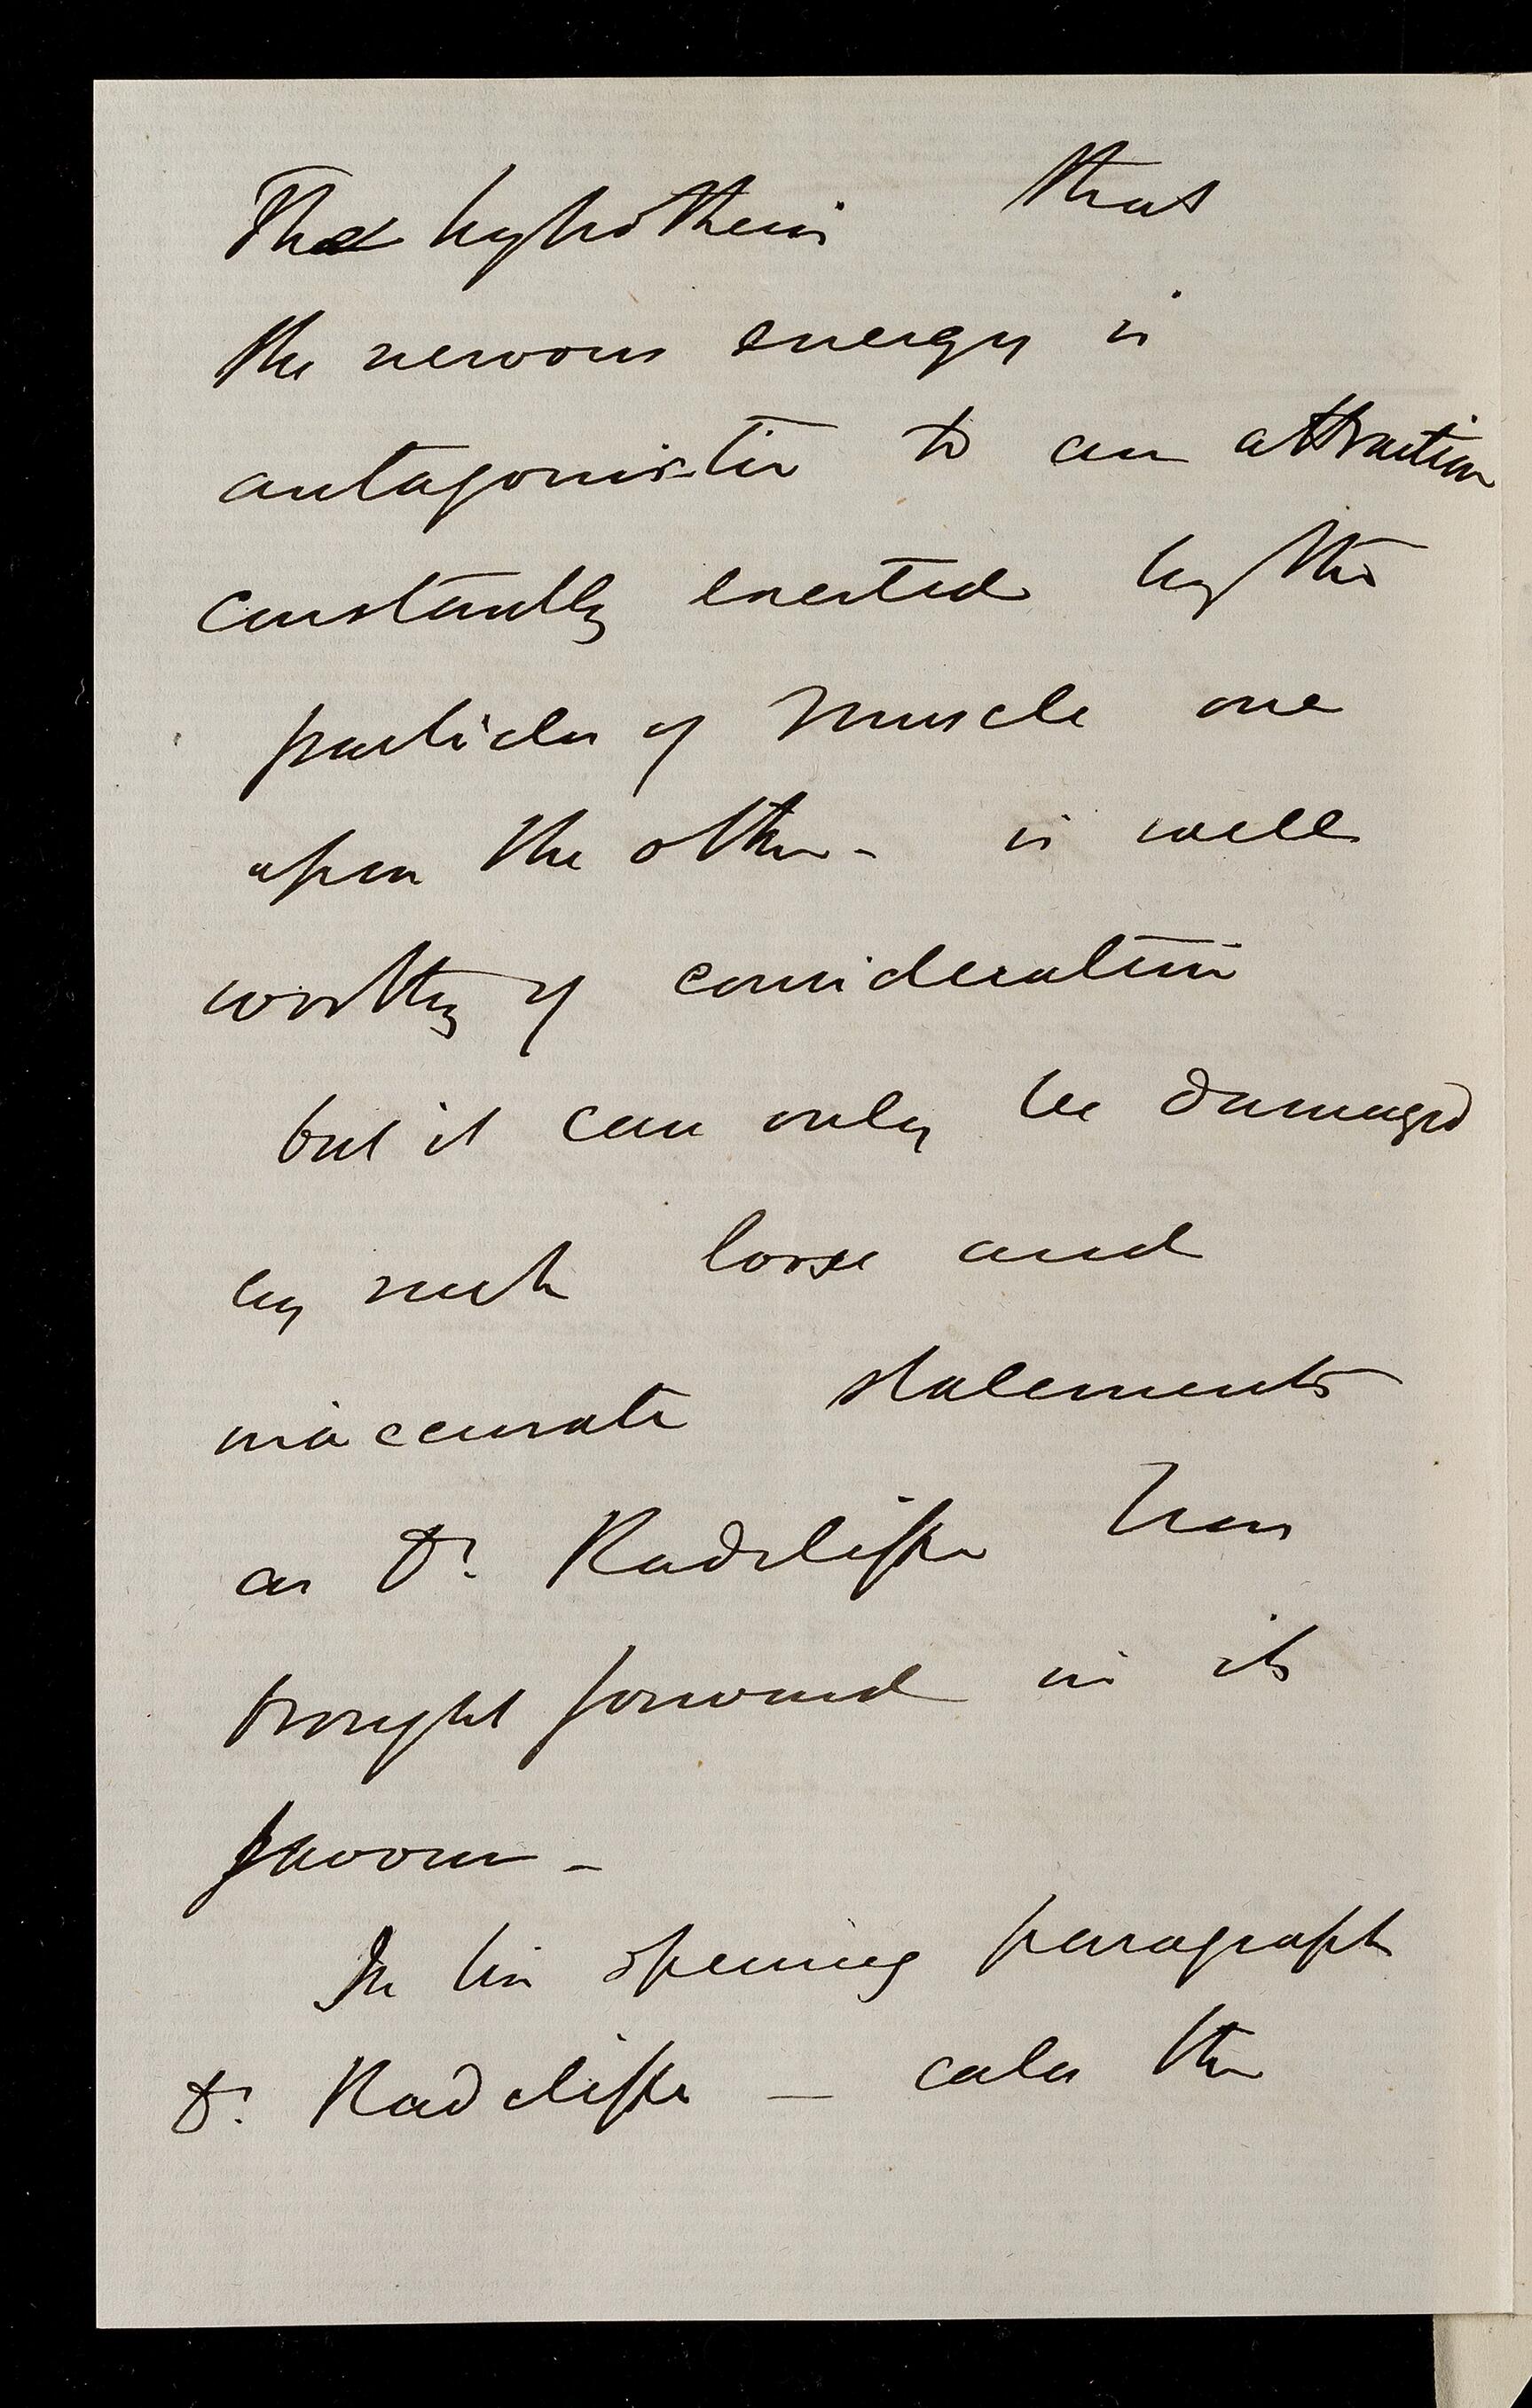 The hypothesis that
the nervous energy is
antagonistic to an attraction
constantly exerted by the
particles of muscle one
upon the other - is well
worthy of consideration
but it can only be damaged
by such loose and
inaccurate statements
as Dr. Radcliffe has
brought forward in its
favour -
In his opening paragraph
Dr. Radcliffe — calls the